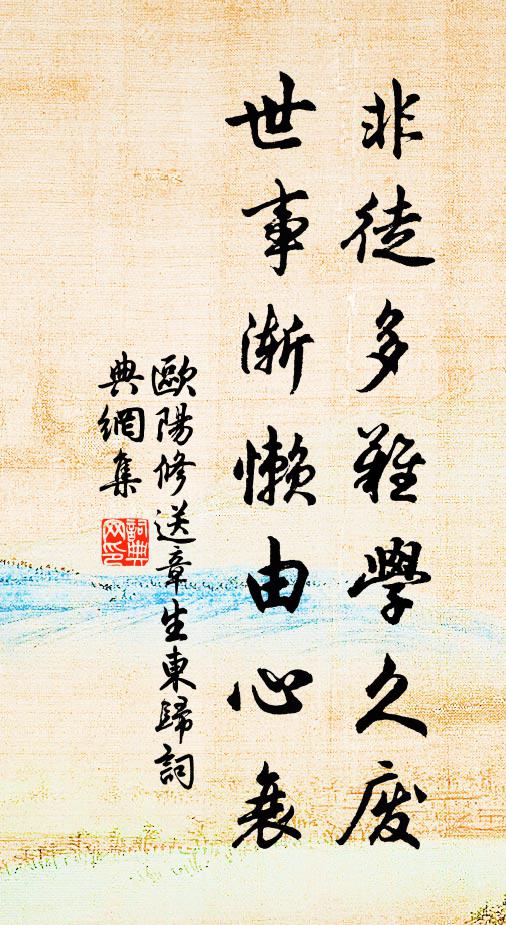 非徒多難學久废
世事漸懒由心衰
歐陽修送章生東歸詞
典網集
詞典
网印